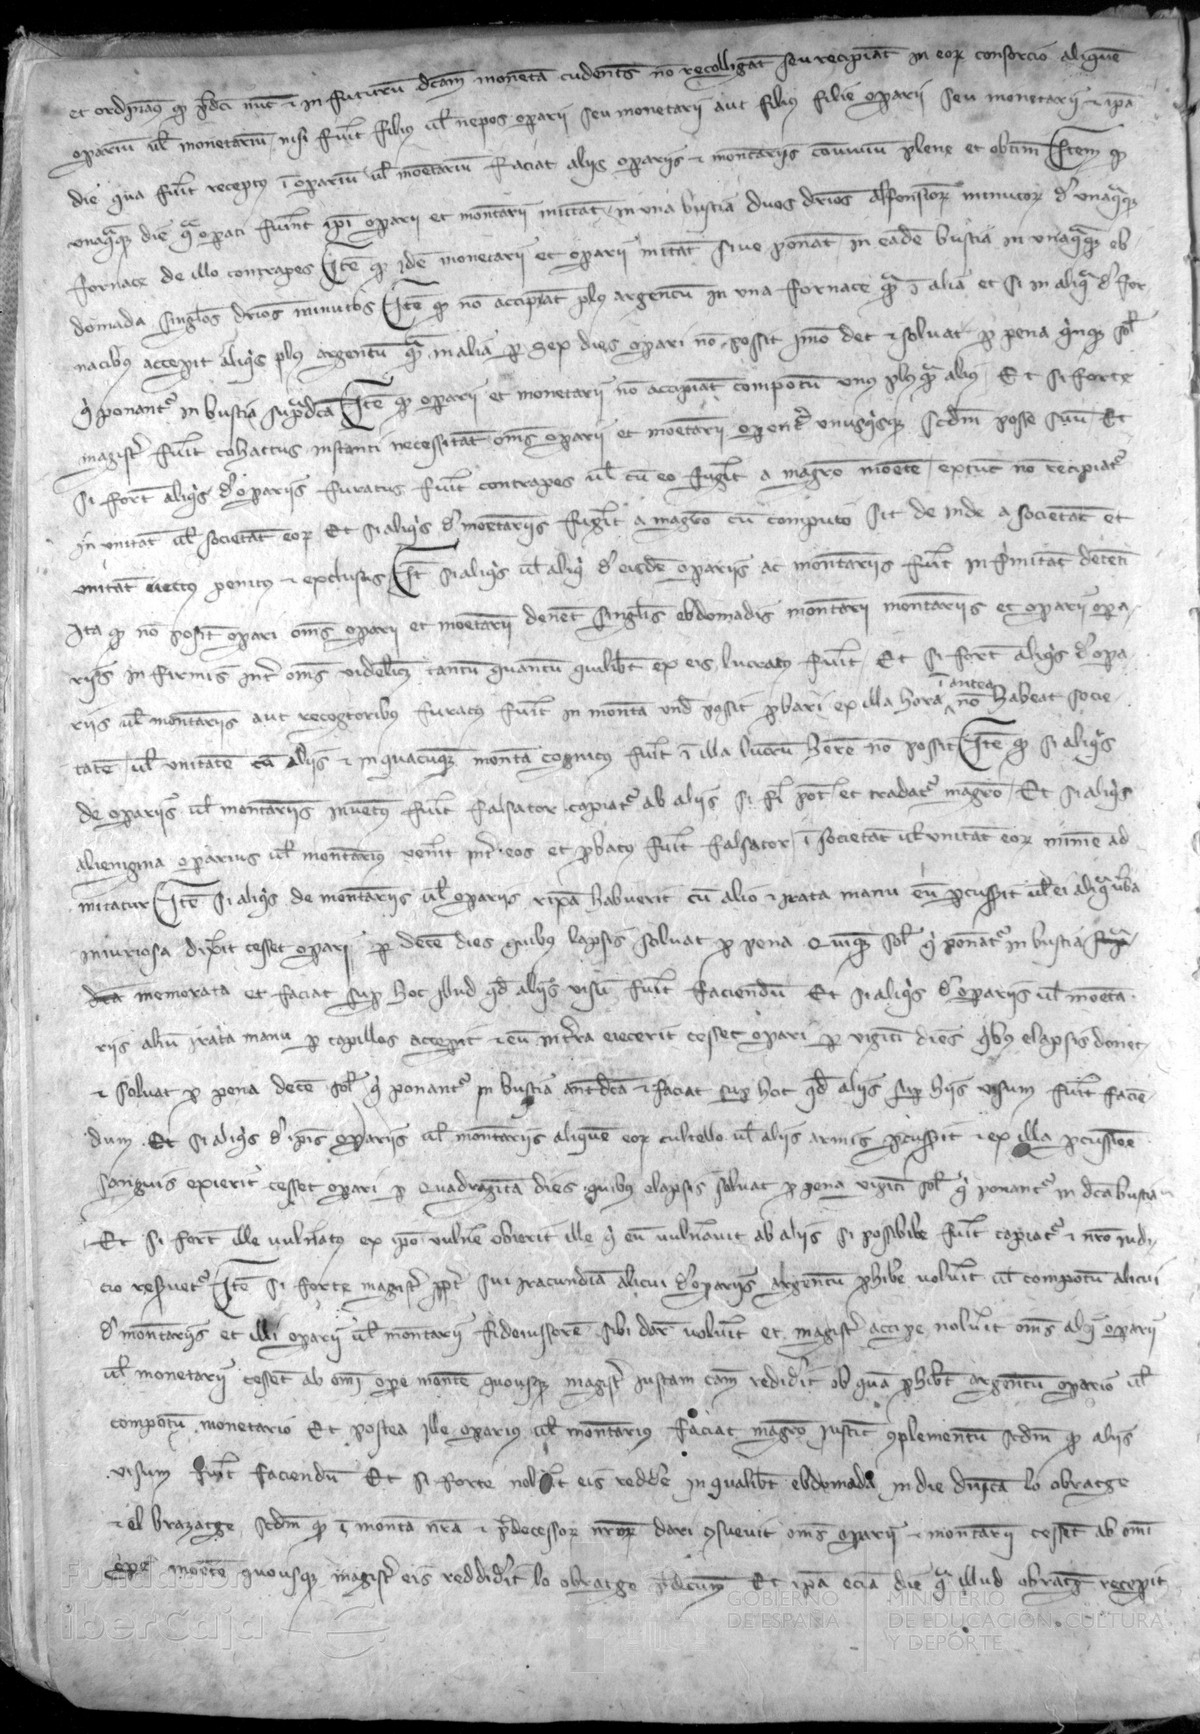 et ordinam9 qp p̄dci nūc ⁊ in futurū dc̄am monetā cudentes nō recolligāt seu recipiāt in eoꝝ consorcio aliquē
opariū ul̄ monetariū nisi fu'it filiꝰ ul̄ nepos oparii seu monetarii aut filiꝰ filie oparii seu monetarii ⁊ ip̄a
die qua fu'it receptꝰ ī opariū ul̄ moetariū faciat aliis opariis ⁊ mont̄ariis conviviū plene et Item qp
unaq̄qꝫ die q̄ opati fu'int ip̄i oparii et mont̄arii mictāt in una bustia duos dr̄ios alfonsinoꝝ minutoꝝ d' unaq̄qꝫ
fornace de illo contrapes Itē qp idē monetarii et oparii mitāt sive ponāt in eadē bustia in unaq̄qꝫ eb
domada singl̄os dr̄ios minutos Itē qp nō accipiāt plꝰ argentū in una fornace q̄ ī aliā et si in aliq̄ d' for
nacibꝰ accepit aliq's plꝰ argentū q̄ in aliā p sex dies opari nō possit imō det ⁊ solvat p pena q'nqꝫ sol̄
q' ponant' in bustia sup̄dcā Itē qp oparii et monetarii nō accipiāt compotū unꝰ plꝰ q̄ aliꝰ Et si forte
magist' fu'it cohactus instanti necessitate om̄s oparii et moetarii opent' unusq'sqꝫ scd̄m posse suū Et
si fort̄ aliq's d' opariis furatus fu'it contrapes ul̄ cū eo fug'it a magr̄o moete extūc nō recipiat'
in unitat̄ ul̄ societat̄ eoꝝ Et si aliq's d' moetariis fug'it a magr̄o cū computo sit de inde a societat̄ et
unitat̄ eiectꝰ penitꝰ ⁊ exclusus It̄ si aliq's ul̄ aliq' d' eisdē opariis ac mont̄ariis fu'it infirmitat̄ detēti
Ita qp nō possit opari om̄s oparii et moetarii donēt singl̄is ebdomadis mont̄arii mont̄ariis et oparii opa
riis infirmis int' om̄s videlicꝫ tantū quantū quilib̄t ex eis lucratꝰ fu'it Et si fort̄ aliq's d' opa
riis ul̄ mont̄ariis aut recogtoribꝰ furatꝰ fu'it in mont̄a und̄ possit pbari ex illa hora ī antea nō habeat socie
tatē ul̄ unitatē cū aliis ⁊ in quacūqꝫ mont̄a cognitꝰ fu'it ī illa lucrū her̄e nō possit Itē qp si aliq's
de opariis ul̄ mont̄ariis invētꝰ fu'it falsator copiat' ab aliis si fi'i pot̄ et tradat' magr̄o Et si aliq's
alienigina oparius ul̄ mont̄ariꝰ ven'it int' eos et pbatꝰ fu'it falsator ī societat̄ ul̄ unitat̄ eoꝝ minime ad
mitatur Itē si aliq's de mont̄ariis ul̄ opariis rixā habuerit cū alio ⁊ irata manu eū pcussit ul̄ ei aliq̄ v'ba
iniuriosa dix'it cesset opari p decē dies quibus lapsis solvat p pena quiqꝫ sol̄ q' ponāt' in bustia sup̄
dcā memorata et faciat sup hoc illud qd̄ aliis visū fu'it faciendū Et si aliq's d' opariis ul̄ moeta
riis aliū irata manu p capillos accepit ⁊ eū in t'ra eiecerit cesset opari p viginti dies q'bꝰ elapsis donet
⁊ solvat p pena decē sol̄ q' ponant' in bustia ant̄dcā ⁊ faciat sup hoc qd̄ aliis sup hiis visum fu'it faciē
dum Et si aliq's d' ip̄is opariis ul̄ mont̄ariis aliquē eoꝝ cultello ul̄ aliis armis pcussit ⁊ ex illa pcussiōe
sanguis exierit cesset opari p quadraginta dies quibus elapsis solvat p pena viginti sol̄ q' ponant' in dcā bustia
Et si fort̄ ille vuln'atꝰ ex ip̄o vuln'e obierit ille q' eū vuln'avit ab aliis si possibile fu'it capiat' ⁊ nr̄o iudi
cio res'vet' Itē si forte magist' ppt' sui iracundiā alicui d' opariis argentū phibe volu'it ul̄ compotū alicui
d' mont̄ariis et illi oparii ul̄ mont̄arii fideiussorē sibi dar̄ volu'it et magist' accipe nolu'it om̄s alii oparii
ul̄ monetarii cessēt ab om̄i ope monete quousqꝫ magist' iustam cām redid'it ob quā phib̄t argentū opario ul̄
compotū monetario Et postea ille opariꝰ ul̄ mont̄arius faciat magr̄o iustic' 9plementū scd̄m qp aliis
visum fu'it faciendū Et si forte nolu'it eis redd'e in qualib̄t ebdomada in die dn̄ica lo obratge
⁊ el brazatge scd̄m qp ī mont̄a nr̄a ⁊ p̄decessoꝝ nr̄oꝝ dari 9suevit om̄s oparii ⁊ mont̄arii cessēt ab om̄i
ope moete quousqꝫ magist' eis reddid'it lo obratge p̄dictum Et ip̄a eciā die q̄ illud obratḡ recepit
Fundación
iberCaja
GOBIERNO
DE ESPAÑA
MINISTERIO
DE EDUCACIÓN, CULTURA
Y DEPORTE